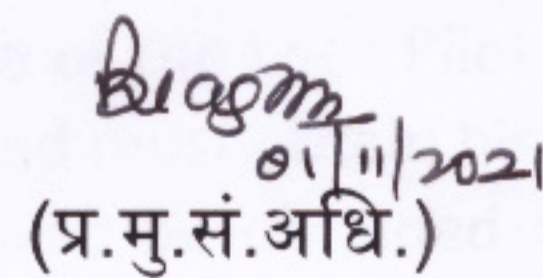 01/11/2021
(प्र.मु.सं.अधि.)